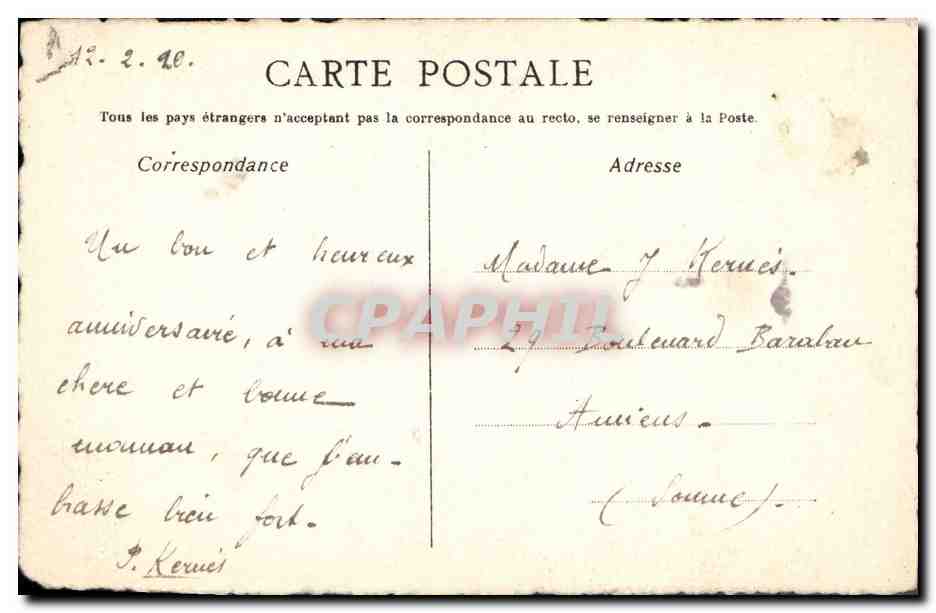 12. 2. 20.
CARTE POSTALE
Tous les pays étrangers n'acceptent pas la correspondance au recto, se renseigner à la Poste.
Correspondance
Un bon et heureux
anniversaire, à ma
chere et bonne
maman, que j'em-
brasse bien fort.
P. Kernés
Adresse
Madame J Kernés.
29 Boulevard Baraban
Amiens.
(Somme).
CPAPHIL